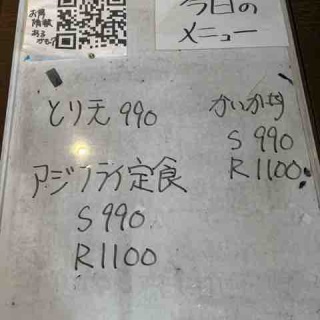 今日の
メニュー
とり天 990
アジフライ定食
S 990
R 1100
かいか丼
S 990
R 1100